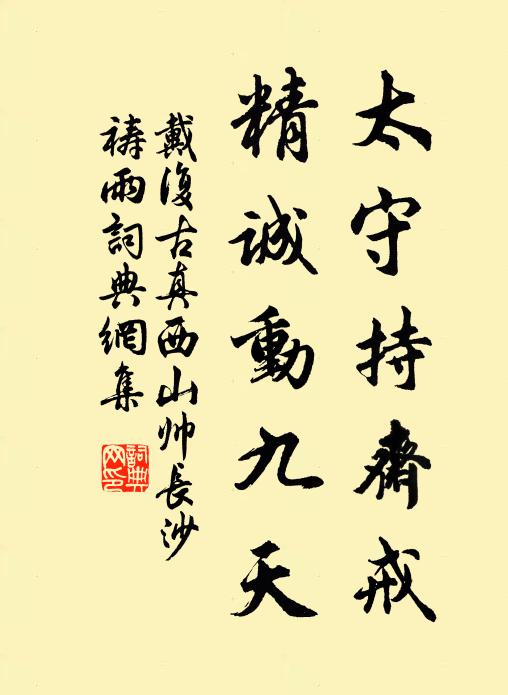 太守持齋戒
精誠動九天
戴復古真西山帅長沙
禱雨詞典網集
詞典
网印